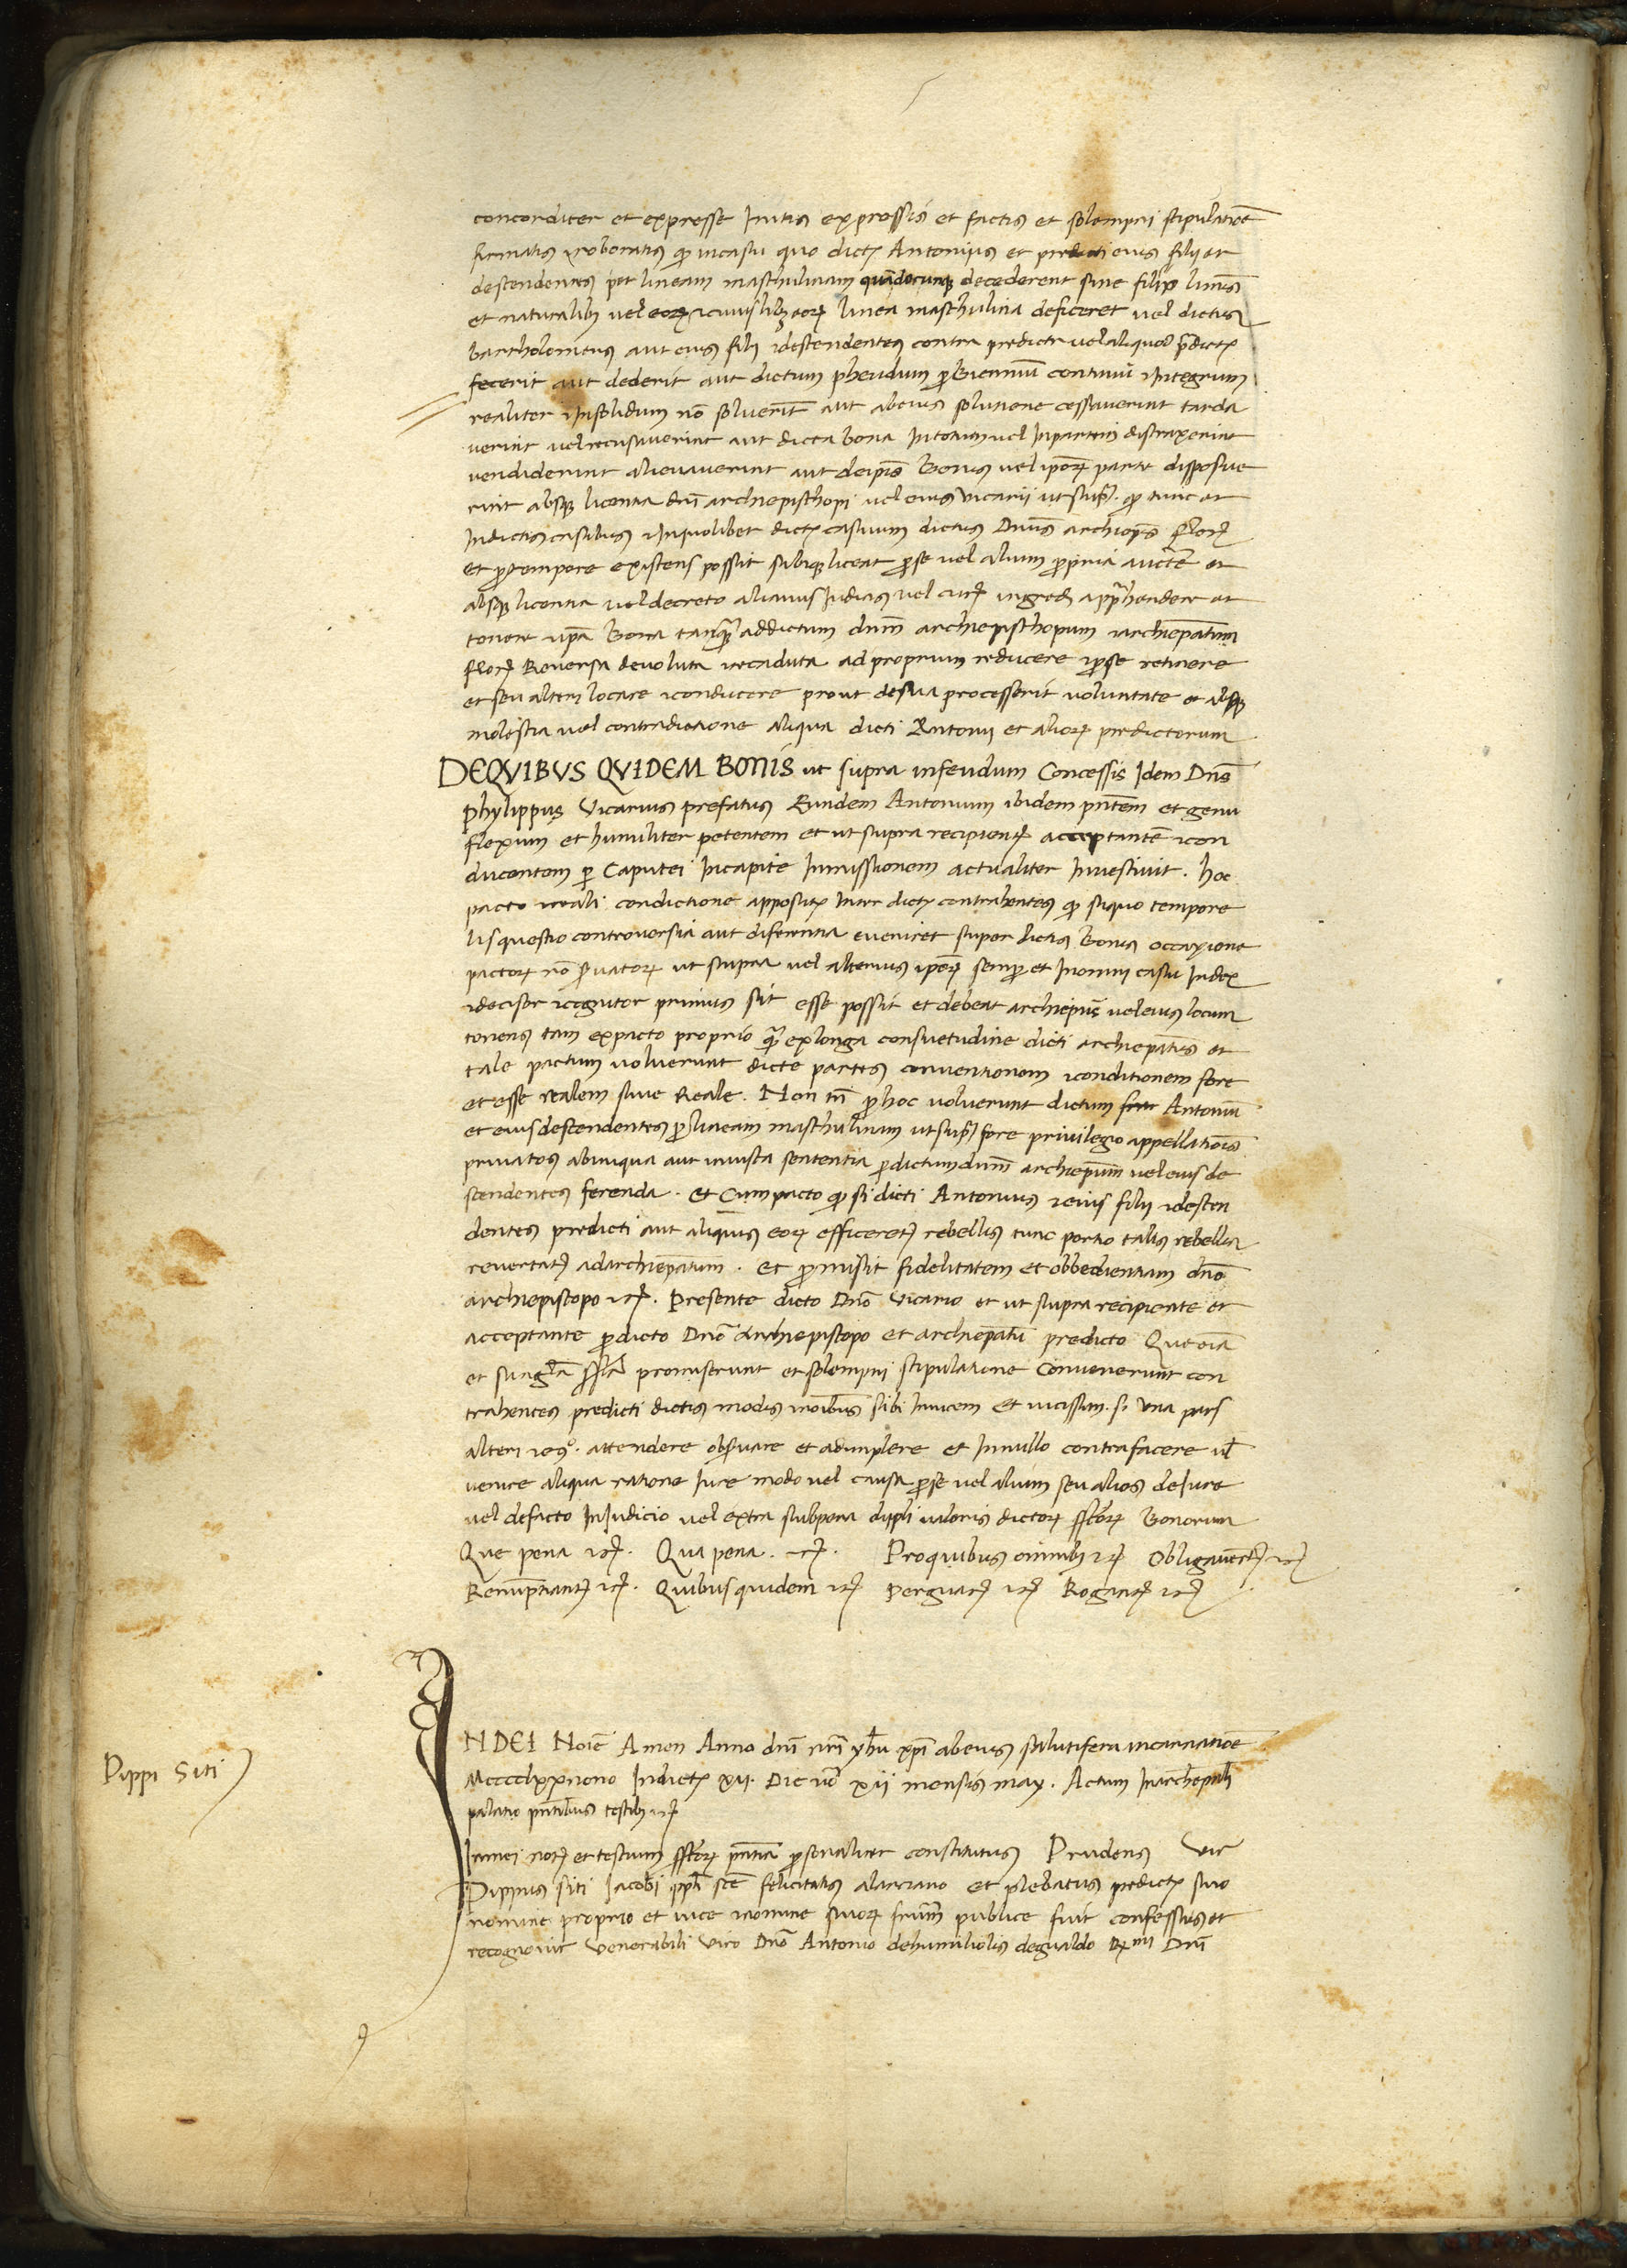 concorditer et expresse Initis expressis et factis et solempni stipulatiōe
firmatis ⁊ roboratis ꝙ incasu quo dictꝫ Antonius et predicti eius filij et
descendentes per lineam maschulinam quandocunqꝫ decederent sine filijs
et naturalibꝫ vel eorꝫ ⁊ cuiuslibꝫ eorꝫ linea maschulina deficeret vel dictus
bartholomeus aut eius filij ⁊ descendentes contra predicta vel aliquod p̄dictꝫ
fecerit aut dederit aut dictum pheudum ꝑ biennium continuū ⁊ Integrum
realiter ⁊ Insolidum nō soluerīt aut ab eius solutione cessauerint tarda
uerint vel recusauerint aut dicta bona Intotum vel Inpartem distraxerint
vendiderint alienauerint aut deipīs Bonis vel ipsorꝫ parte disposue
rint absqꝫ licentia dn̄i archiepischopi vel eius vicarii ut sup̄. ꝙ tunc et
Indictis casibus ⁊ Inquolibet dictꝫ casuum dictus Dn̄us archiep̄s Flor̄
et ꝓ tempore existens possit sibiqꝫ liceat ꝑse vel alium ꝓpria auctē et
absqꝫ licentia vel decreto alicuius Iudicis vel cur̄ ingredi appr̄hendere et
tenere ip̄a Bona tanqꝫ addictum dn̄m archiepischopum ⁊ archiepātum
Flor̄ Reuersa deuoluta ⁊ recaduta ad proprium reducere ⁊ ꝑse retinere
et seu alteri locare ⁊ conducere prout desua processerit voluntate et absqꝫ
molestia vel contradictione aliqua dicti Antonij et aliorꝫ predictorum
DEQVIBVS QVIDEM BONIS ut supra infeudum Concessis Idem Dn̄s
Phylippus Vicarius prefatus Eundem Antonium ibidem pn̄tem et genu
flexum et humiliter petentem et ut supra recipientꝫ acceptantē ⁊ con
ducentem ꝑ Caputei Incapite Inmissionem actualiter Inuestiuit. hoc
pacto ⁊ reali condictione appositꝫ Inter dictꝫ contrahentes ꝙ siquo tempore
lis questio controuersia aut diferentia eueniret super dictis Bonis occaxione
pactorꝫ nō ꝓuatorꝫ ut supra vel alterius ipsorꝫ semꝑ et Inomni casu Iudex
⁊ decisor ⁊ cognitor primus sit esse possit et debeat archiep̄us vel eius locum
tenens tam expacto proprio qꝫ exlonga consuetudine dicti archiepātus et
tale pactum voluerunt dicte partes conuentionem ⁊ conditionem fore
et esse realem siue Reale. Non tn̄ ꝓ hoc voluerunt dictum Antoniū
et eius descendentes ꝑ lineam maschulinam ut sup̄ fore priuilegio appellatiōis
priuatos abiniqua aut iniusta sententia ꝑ dictum dn̄m archiep̄um vel eius de
scendentes ferenda. et Cum pacto ꝙ si dicti Antonius ⁊ eius filij ⁊ descen
dentes predicti aut aliquis eorꝫ efficeretꝫ rebellis tunc portio talis rebellis
reuertatꝫ ad archiepātum. et ꝓmisit fidelitatem et obbedientiam dn̄o
archiepiscopo ⁊cꝫ. Presente dicto Dn̄o Vicario et ut supra recipiente et
acceptante ꝓ dicto Dn̄o Archiepiscopo et archiepātū predicto Que oīa
et singl̄a promiserunt et solempni stipulatione Conuenerunt con
trahentes predicti dictis modis ⁊ noībus sibi Inuicem et vicissim. s. vna pars
alteri ⁊ eꝯͦ. attendere obseruare et adimplere et Innullo contrafacere ul̄
venire aliqua ratione Iure modo vel causa ꝑse vel alium seu alios deIure
vel defacto InJudicio vel extra subpena dupli valoris dictorꝫ Bonorum
Que pena ⁊cꝫ. Qua pena. ⁊cꝫ. Proquibus omnibꝫ ⁊cꝫ Obligauerꝫ ⁊cꝫ
Renumptiantꝫ ⁊cꝫ. Quibus quidem ⁊cꝫ Perguarꝫ ⁊cꝫ Rogantꝫ ⁊cꝫ
Pippi Siti
IN DEI Noīe Amen Anno dn̄i nr̄i yh̄u xp̄i abeius salutifera incarnatiōe
Mcccclxxnono Indictꝫ xii. Die vō xii mensis may. Actum Inarchiepali
palatio pn̄tibus testibꝫ ⁊cꝫ
Inmei notꝫ et testium pn̄tia ꝑsonaliter constitutus Prudens Vir
Pippus siti Iacobi ppl̄i sc̄e felicitatis alarciano et plebatus predictꝫ suo
nomine proprio et vice ⁊ nomine suorꝫ frūm publice fuit confessus et
recognouit Venerabili Viro Dn̄o Antonio dehumiliolis degualdo Rᵐⁱ Dn̄i